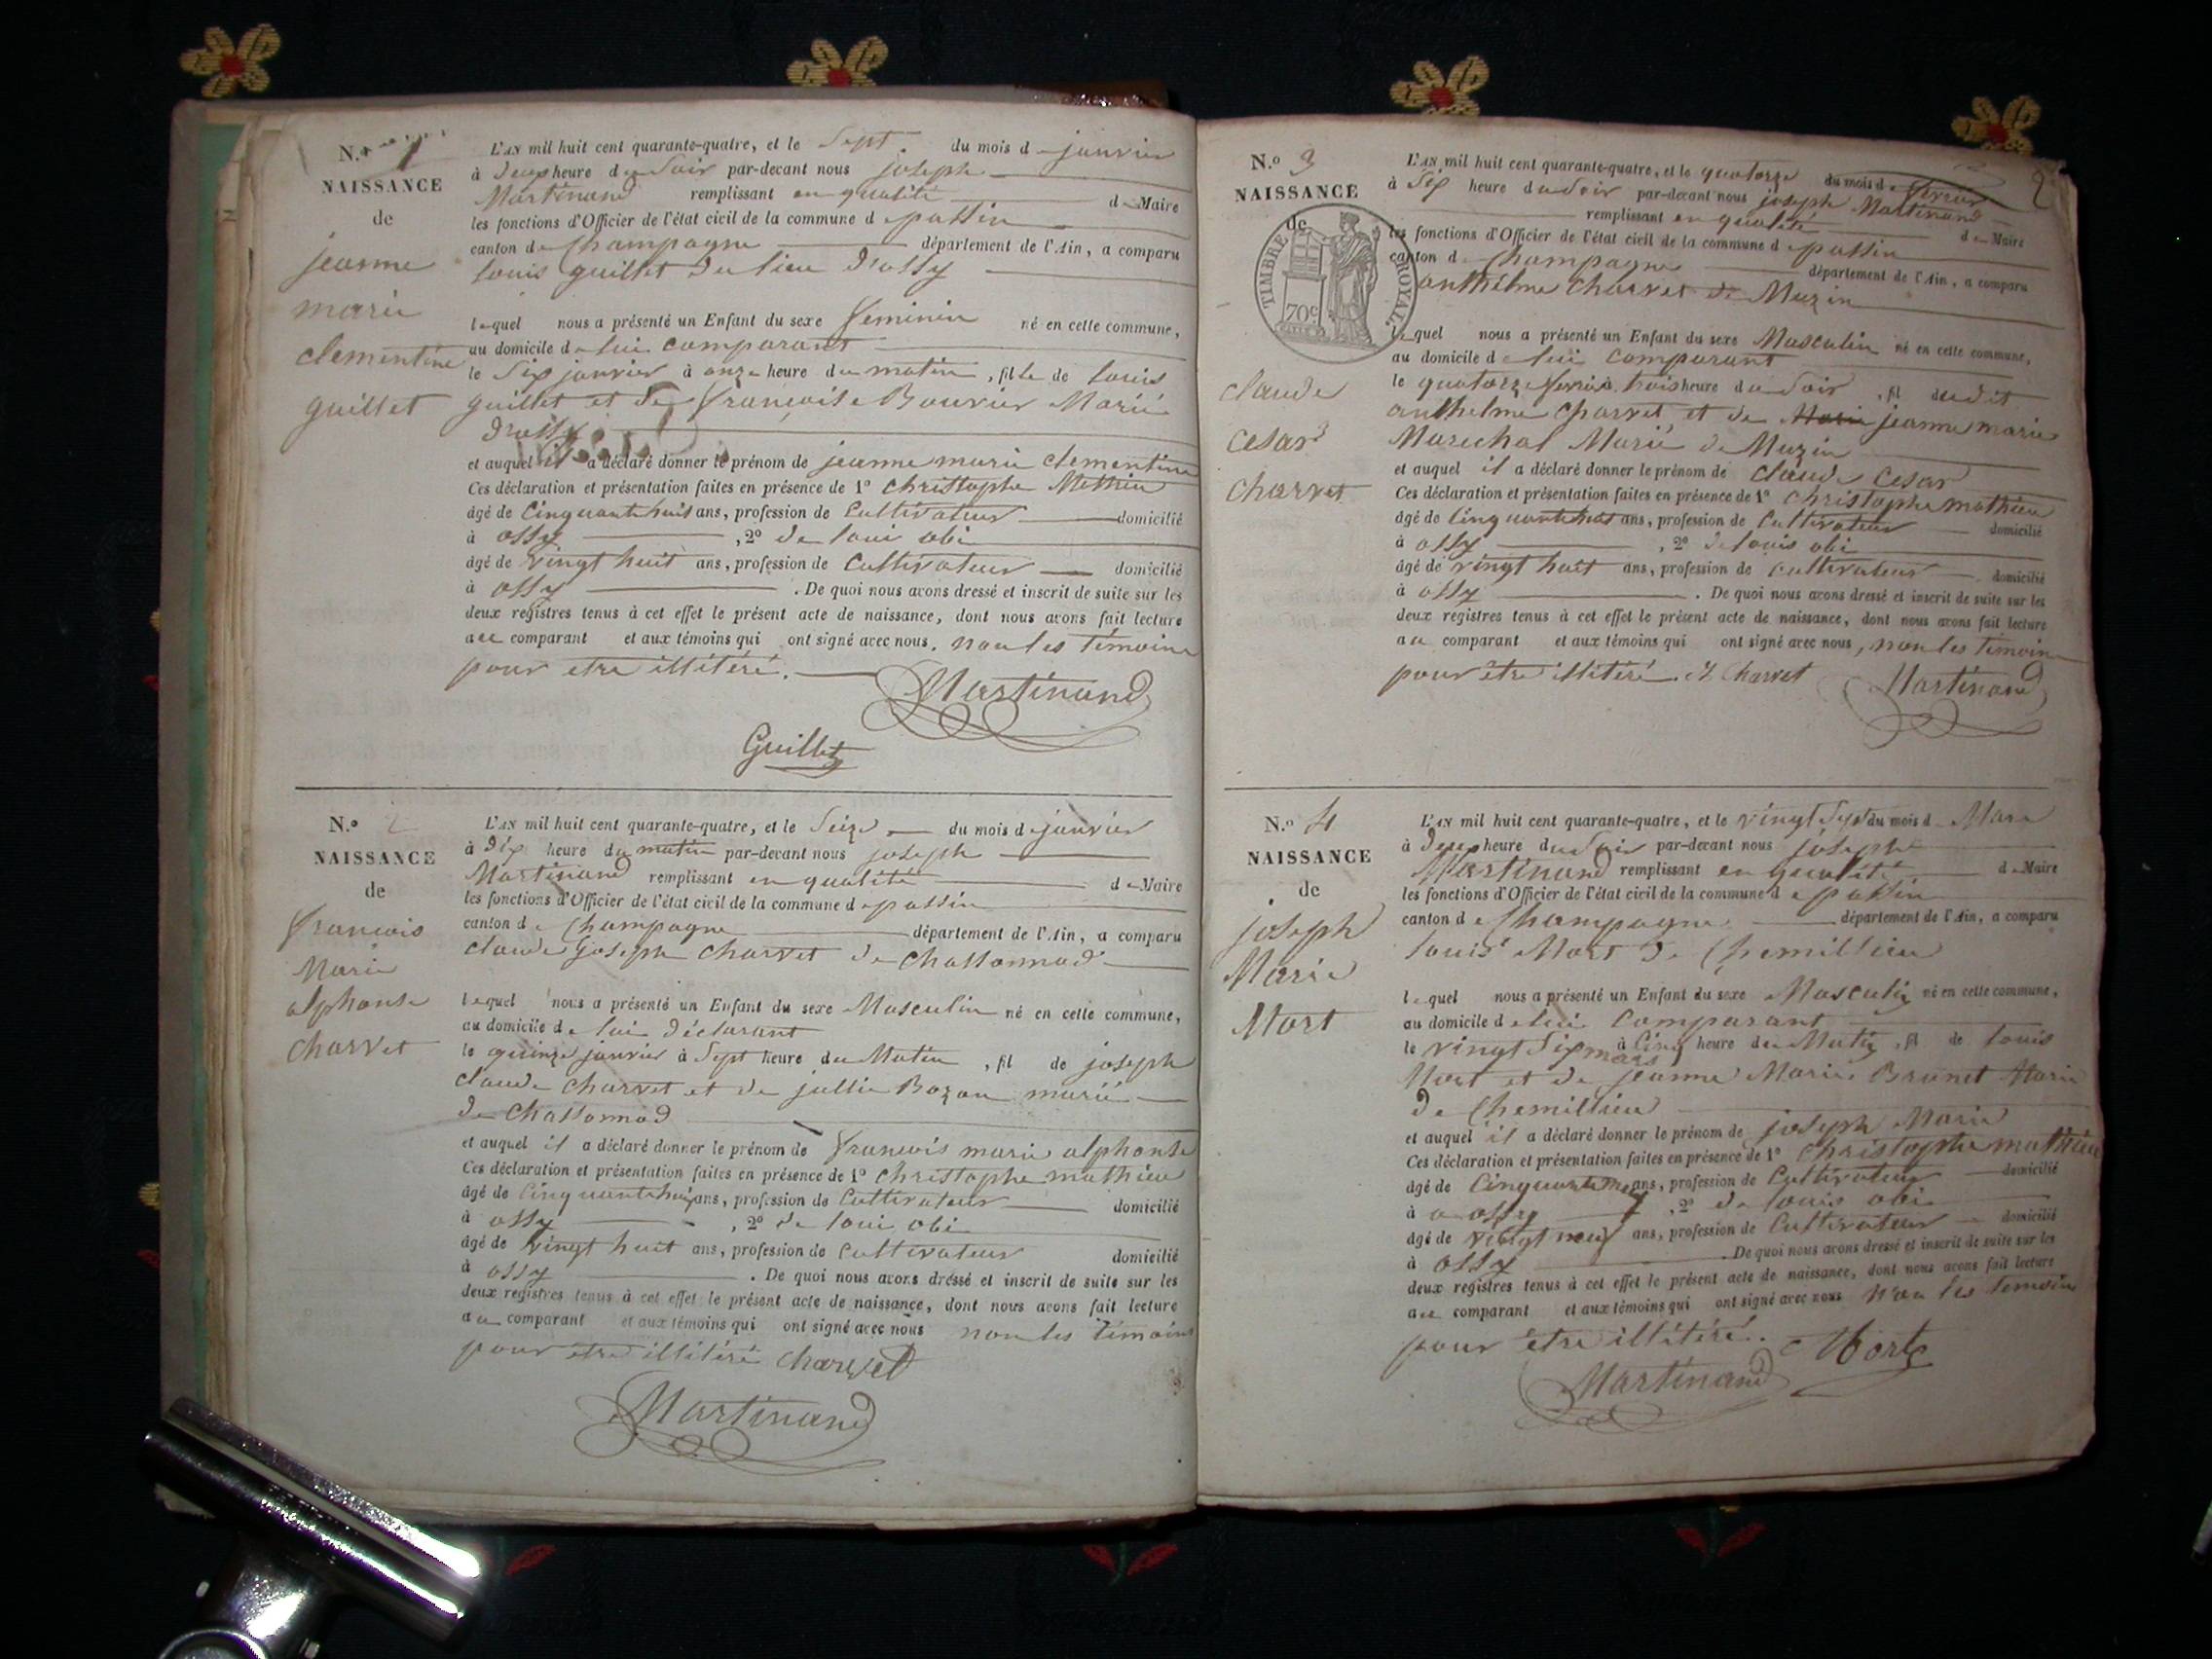 N.º 1
NAISSANCE
de
jeanne
marie
clementine
guillet
L'AN mil huit cent quarante-quatre, et le Sept du mois d janvier
à deux heure du Soir par-devant nous joseph
Martinand remplissant en qualité de Maire
les fonctions d'Officier de l'état civil de la commune d passin
canton de Champagne département de l'Ain, a comparu
louis guillet du lieu d'ossy
lequel nous a présenté un Enfant du sexe feminin né en cette commune,
au domicile de lui comparant
le Six janvier à onze heure du matin, fille de louis
guillet et de françoise Bouvier Marié
d'ossy
et auquel il a déclaré donner le prénom de jeanne marie clementine
Ces déclaration et présentation faites en présence de 1º christophe Mathieu
âgé de Cinquante huit ans, profession de Cultivateur domicilié
à ossy, 2º de loui obi
âgé de vingt huit ans, profession de Cultivateur domicilié
à ossy. De quoi nous avons dressé et inscrit de suite sur les
deux registres tenus à cet effet le présent acte de naissance, dont nous avons fait lecture
au comparant et aux témoins qui ont signé avec nous. non les témoins
pour etre illitéré.
Martinand
Guillet
N.º 2
NAISSANCE
de
francois
Marie
alphonse
charvet
L'AN mil huit cent quarante-quatre, et le Seize du mois d janvier
à dix heure du matin par-devant nous joseph
Martinand remplissant en qualité de Maire
les fonctions d'Officier de l'état civil de la commune d passin
canton de Champagne département de l'Ain, a comparu
claude joseph Charvet de Chassonnod
lequel nous a présenté un Enfant du sexe Masculin né en cette commune,
au domicile de lui déclarant
le quinze janvier à Sept heure du Matin, fil de joseph
claude charvet et de jullie Bozon marié
de chassonnod
et auquel il a déclaré donner le prénom de francois marie alphonse
Ces déclaration et présentation faites en présence de 1º christophe mathieu
âgé de Cinquante huit ans, profession de Cultivateur domicilié
à ossy, 2º de loui obi
âgé de vingt huit ans, profession de Cultivateur domicilié
à ossy. De quoi nous avons dressé et inscrit de suite sur les
deux registres tenus à cet effet le présent acte de naissance, dont nous avons fait lecture
au comparant et aux témoins qui ont signé avec nous non les témoins
pour etre illitéré charvet
Martinand
2
N.º 3
NAISSANCE
de
TIMBRE ROYAL
70c
claude
cesar
charvet
L'AN mil huit cent quarante-quatre, et le quatorze du mois d fevrier
à Six heure du Soir par-devant nous joseph Martinand
remplissant en qualité de Maire
les fonctions d'Officier de l'état civil de la commune d passin
canton d Champagne département de l'Ain, a comparu
anthelme charvet de Muzin
lequel nous a présenté un Enfant du sexe Masculin né en cette commune,
au domicile de lui comparant
le quatorze fevrier à trois heure du Soir, fil dudit
anthelme charvet et de Marie jeanne marie
Marechal Marié de Muzin
et auquel il a déclaré donner le prénom de claude cesar
Ces déclaration et présentation faites en présence de 1º christophe mathieu
âgé de Cinquante huit ans, profession de Cultivateur domicilié
à ossy, 2º de louis obi
âgé de vingt huit ans, profession de cultivateur domicilié
à ossy. De quoi nous avons dressé et inscrit de suite sur les
deux registres tenus à cet effet le présent acte de naissance, dont nous avons fait lecture
au comparant et aux témoins qui ont signé avec nous, non les témoins
pour être illitéré. charvet Martinand
N.º 4
NAISSANCE
de
joseph
Marie
Mort
L'AN mil huit cent quarante-quatre, et le vingt Sept du mois d Mars
à deux heure du Soir par-devant nous joseph
Martinand remplissant en qualité de Maire
les fonctions d'Officier de l'état civil de la commune d passin
canton de Champagne département de l'Ain, a comparu
louis Mort de Chemillieu
lequel nous a présenté un Enfant du sexe Masculin né en cette commune,
au domicile de lui comparant
le vingt Six mars à Cinq heure du Matin, fil de louis
Mort et de jeanne Marie Brunet Marié
de Chemillieu
et auquel il a déclaré donner le prénom de joseph Marie
Ces déclaration et présentation faites en présence de 1º christophe mathieu
âgé de Cinquante neuf ans, profession de Cultivateur domicilié
à ossy, 2º de louis obi
âgé de vingt neuf ans, profession de Cultivateur domicilié
à ossy De quoi nous avons dressé et inscrit de suite sur les
deux registres tenus à cet effet le présent acte de naissance, dont nous avons fait lecture
au comparant et aux témoins qui ont signé avec nous non les temoins
pour être illitéré. Mort
Martinand